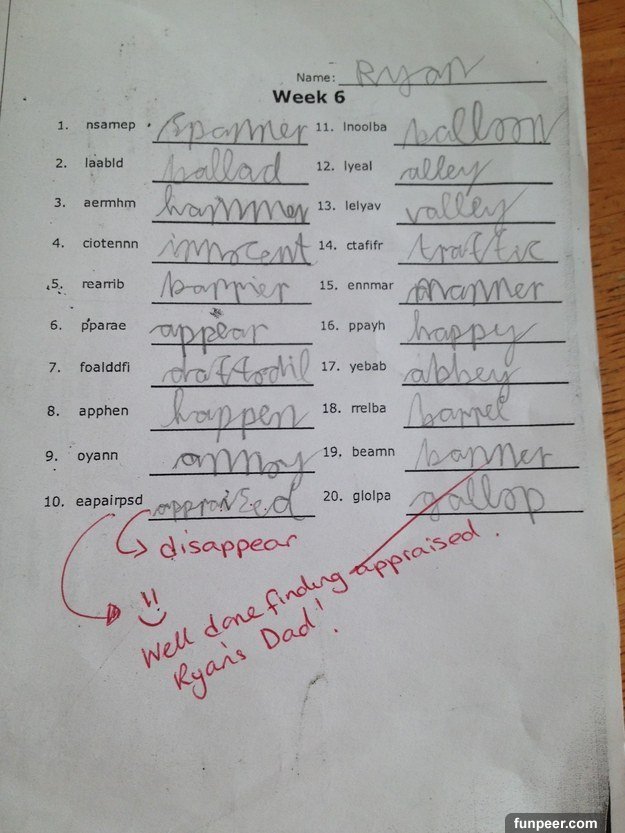 Name: Ryan
Week 6
1. nsarnep spanner
2. laabld ballad
3. aermhm hammer
4. ciotennn innocent
5. rearrib barrier
6. pparae appear
7. foalddfi daffodil
8. apphen happen
9. oyann annoy
10. eapairpsd appraised
11. lnoolba balloon
12. lyeal alley
13. lelyav valley
14. ctafifr traffic
15. ennmar manner
16. ppayh happy
17. yebab abbey
18. rrelba barrel
19. bearnn banner
20. glolpa gallop
disappear
Well done finding appraised.
Ryan's Dad!
funpeer.com